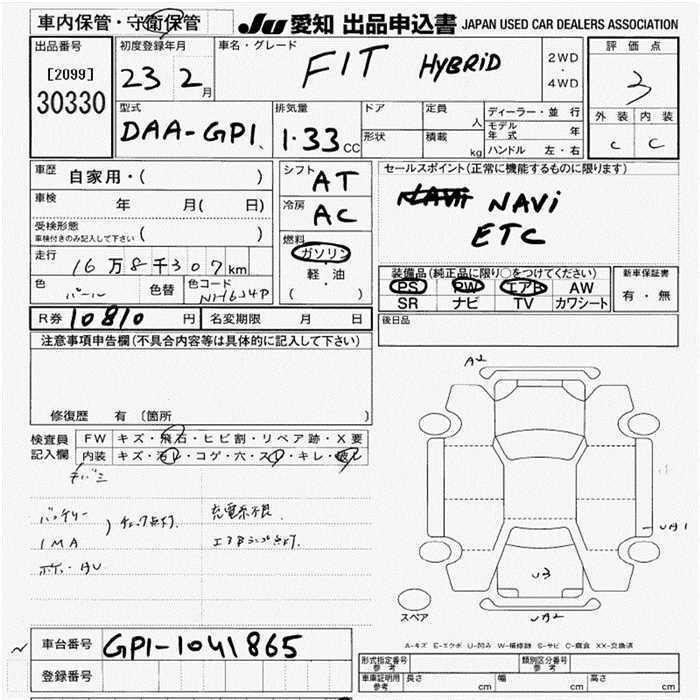 車内保管・守衛保管
JU 愛知 出品申込書 JAPAN USED CAR DEALERS ASSOCIATION
出品番号
[2099]
30330
初度登録年月
23 2月
車名・グレード
FIT HYBRiD
2WD
・
4WD
評価点
3
外装 内装
C C
型式
DAA-GP1
排気量
1.33 CC
ドア
形状
定員 人
積載 kg
ディーラー・並行
モデル年式 年
ハンドル 左・右
車歴 自家用・( )
車検 年 月( 日)
受検形態
車検付きのみ記入して下さい ( )
走行 16万8千307km
色 パール 色替 色コード NH624P
シフト AT
冷房 AC
燃料
ガソリン
・
軽油
( )
セールスポイント(正常に機能するものに限ります)
NAVi
ETC
装備品(純正品に限り○をつけてください)
PS PW エアB AW
SR ナビ TV カワシート
新車保証書
有・無
R券 10810円 名変期限 月 日
後日品
注意事項申告欄(不具合内容等は具体的に記入して下さい)
修復歴 有 (箇所 )
検査員記入欄
FW キズ・飛石・ヒビ割・リペア跡・X要
内装 キズ・汚レ・コゲ・穴・スレ・キレ・破レ
バッテリー
IMA
チェック点灯.
充電系不良.
エアBランプ点灯.
A2
UA1
U3
UA2
スペア
A-キズ E-エクボ U-凹み W-補修跡 S-サビ C-腐食 XX-交換済
車台番号 GP1-1041865
登録番号
形式指定番号
参考
類別区分番号
参考
車庫証明用
参考
長さ cm 幅 cm 高さ cm